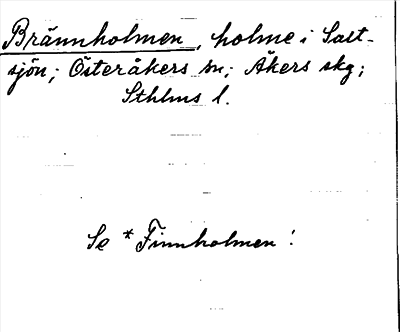 Brännholmen, holme i Salt-
sjön; Österåkers sn; Åkers skg;
Sthlms l.
Se *Finnholmen!